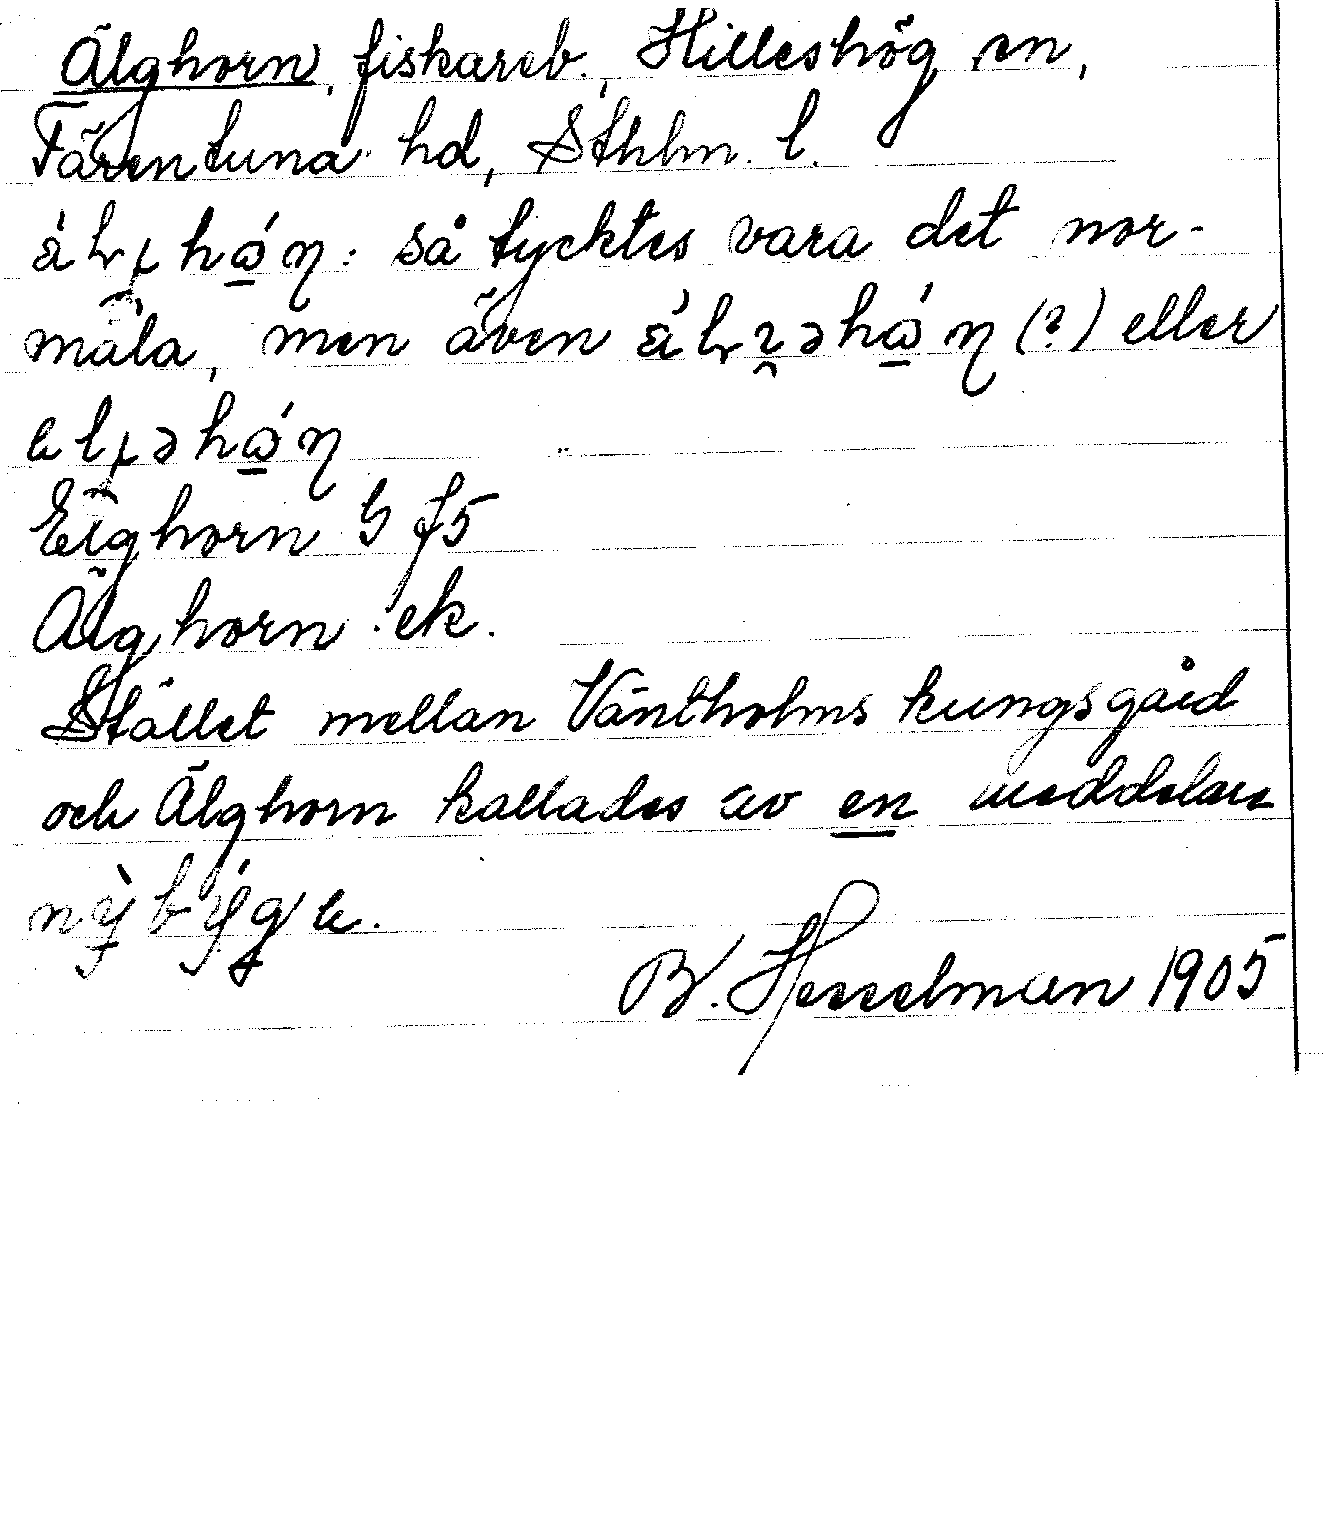 Älghorn, fiskareb., Hilleshög sn,
Färentuna hd, Sthlm. l.
så tycktes vara det nor-
mala, men även (?) eller
Elghorn G f5
Älghorn ek.
Stället mellan Väntholms kungsgård
och Älghorn kallades av en meddelare
B. Hesselman 1905